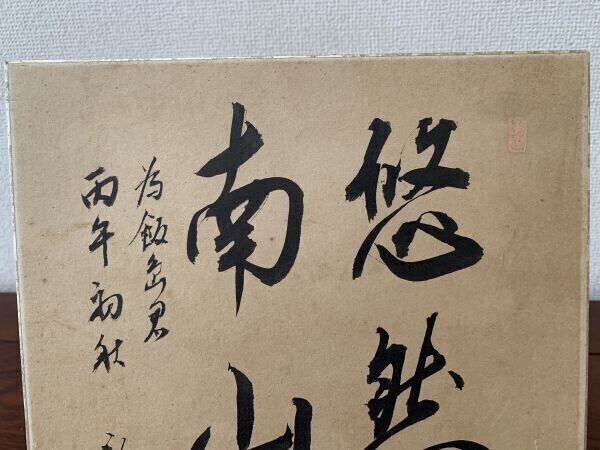 悠然
南山
為飯島君
丙午初秋